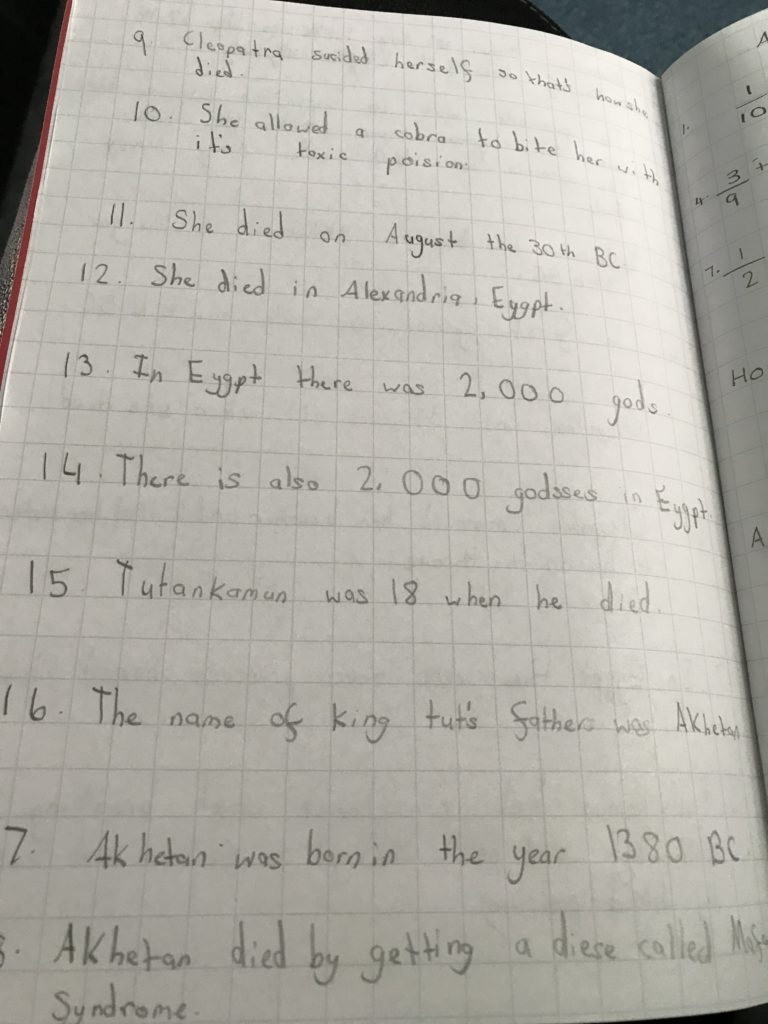 9. Cleopatra sucided herself so that's how she
died.
10. She allowed a cobra to bite her with
it's toxic poision.
11. She died on August the 30th BC
12. She died in Alexandria, Eygpt.
13. In Eygpt there was 2,000 gods.
14. There is also 2,000 godsses in Eygpt.
15 Tutankaman was 18 when he died.
16. The name of king tut's father was Akhetan
7. Akhetan was born in the year 1380 BC
8. Akhetan died by getting a diese called
Syndrome.
A
1. 1/10
4. 3/9 +
7. 1/2
HO
A